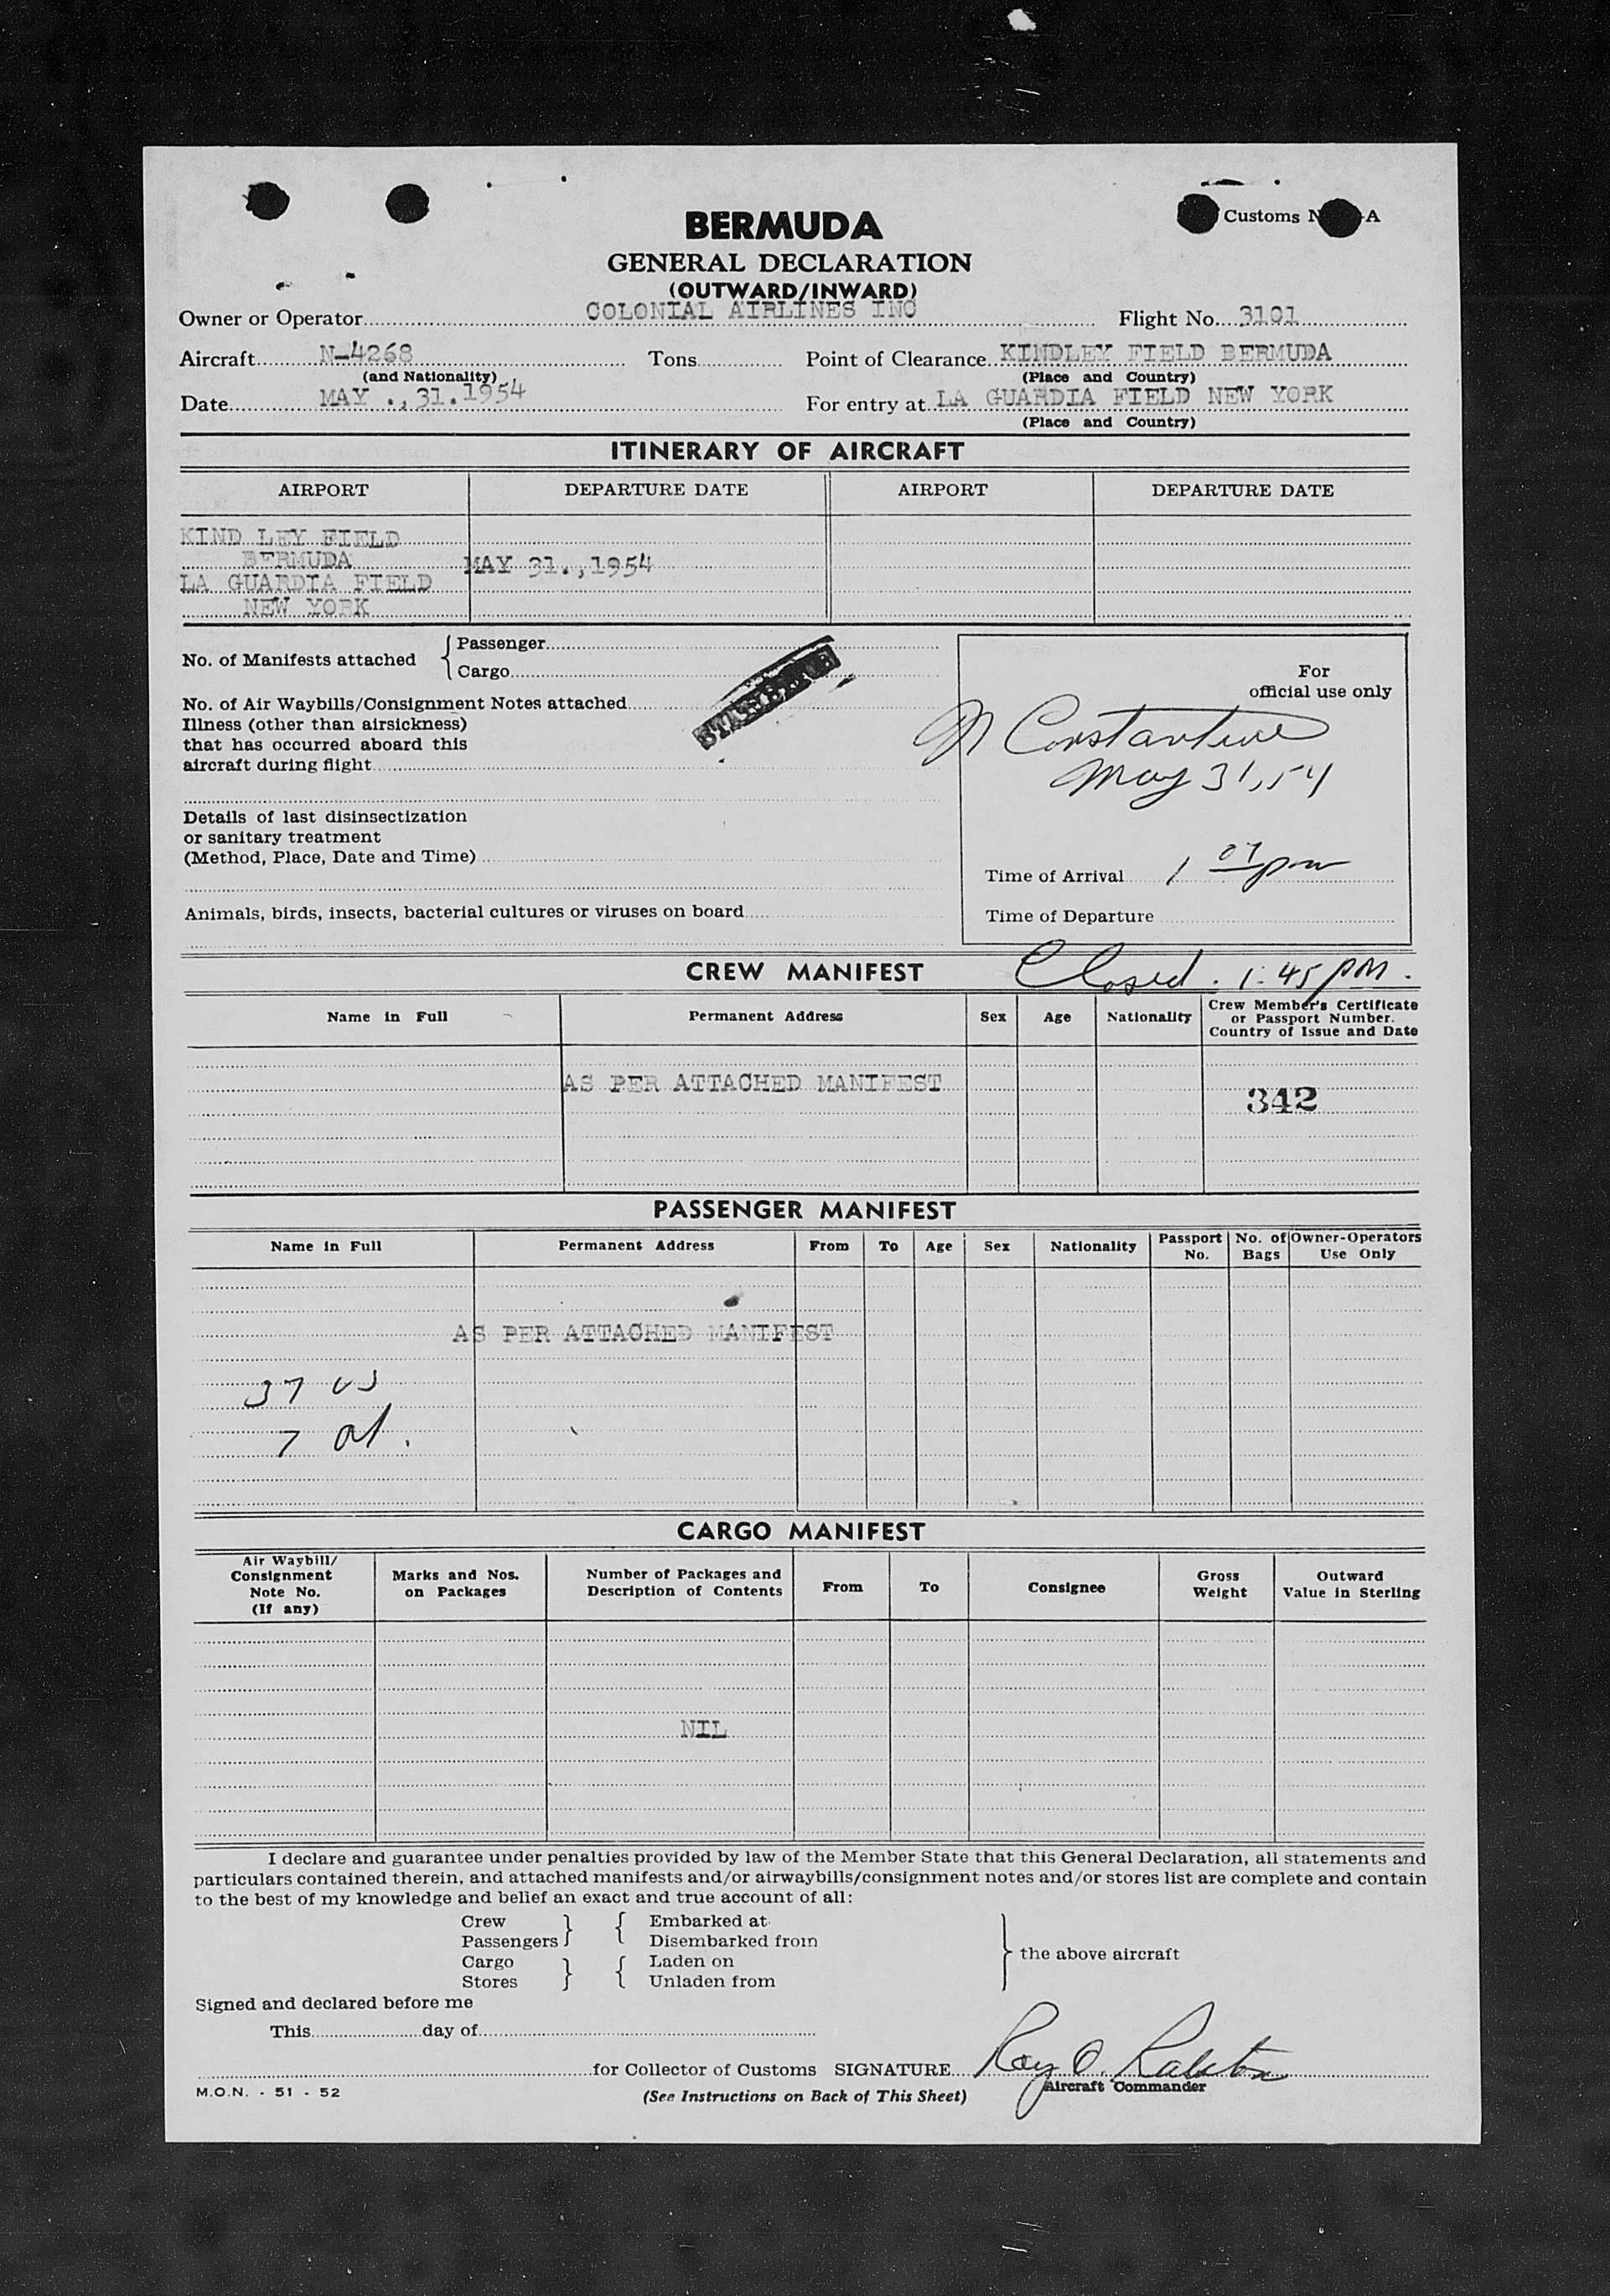 Customs N -A
BERMUDA
GENERAL DECLARATION
(OUTWARD/INWARD)
Owner or Operator COLONIAL AIRLINES INC Flight No. 3101
Aircraft N-4268 Tons Point of Clearance KINDLEY FIELD BERMUDA
(and Nationality) (Place and Country)
Date MAY ., 31. 1954 For entry at LA GUARDIA FIELD NEW YORK
(Place and Country)
ITINERARY OF AIRCRAFT
AIRPORT DEPARTURE DATE AIRPORT DEPARTURE DATE
KIND LEY FIELD
BERMUDA MAY 31.,1954
LA GUARDIA FIELD
NEW YORK
No. of Manifests attached { Passenger
Cargo
For
official use only
No. of Air Waybills/Consignment Notes attached
Illness (other than airsickness)
that has occurred aboard this
aircraft during flight
M Constantine
May 31, 54
Details of last disinsectization
or sanitary treatment
(Method, Place, Date and Time)
Time of Arrival 1 07 pm
Animals, birds, insects, bacterial cultures or viruses on board
Time of Departure
CREW MANIFEST Closed . 1:45 PM.
Name in Full Permanent Address Sex Age Nationality Crew Member's Certificate
or Passport Number.
Country of Issue and Date
AS PER ATTACHED MANIFEST
342
PASSENGER MANIFEST
Name in Full Permanent Address From To Age Sex Nationality Passport No. No. of Bags Owner-Operators Use Only
AS PER ATTACHED MANIFEST
37 US
7 al.
CARGO MANIFEST
Air Waybill/
Consignment
Note No.
(If any) Marks and Nos.
on Packages Number of Packages and
Description of Contents From To Consignee Gross
Weight Outward
Value in Sterling
NIL
I declare and guarantee under penalties provided by law of the Member State that this General Declaration, all statements and
particulars contained therein, and attached manifests and/or airwaybills/consignment notes and/or stores list are complete and contain
to the best of my knowledge and belief an exact and true account of all:
Crew } { Embarked at
Passengers Disembarked from
} the above aircraft
Cargo } { Laden on
Stores Unladen from
Signed and declared before me
This day of
for Collector of Customs SIGNATURE Roy O. Ralston
Aircraft Commander
M.O.N. - 51 - 52 (See Instructions on Back of This Sheet)